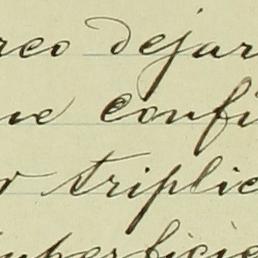 rco dejar
ue confi
r triplic
superficie